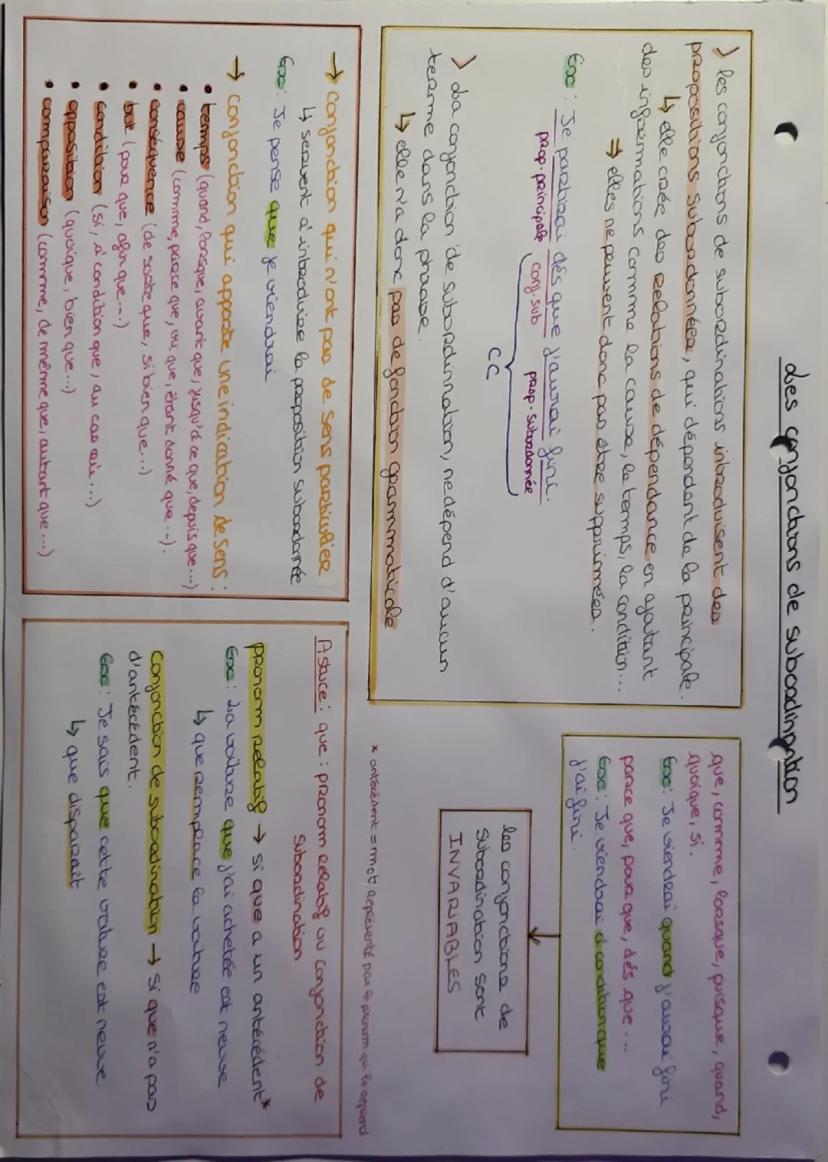 Les conjonctions de subordination
> les conjonctions de subordinations introduisent des
propositions subordonnées, qui dépendent de la principale.
↳ elle crée des relations de dépendance en ajoutant
des informations comme la cause, le temps, la condition...
⇒ elles ne peuvent donc pas être supprimées.
Ex : Je partirai dès que j'aurai fini.
prop. principale conj. sub prop. subordonnée
CC
> La conjonction de subordinnation, ne dépend d'aucun
terme dans la phrase.
↳ elle n'a donc pas de fonction grammaticale
que, comme, lorsque, puisque, quand,
quoique, si.
Ex : Je viendrai quand j'aurai fini
parce que, pour que, dès que...
Ex : Je viendrai à condition que
j'ai fini.
les conjonctions de
subordination sont
INVARIABLES
→ conjonction qui n'ont pas de sens particulier
↳ servent à introduire la proposition subordonnée
Ex : Je pense que je viendrai
→ conjonction qui apporte une indication de sens :
• temps (quand, lorsque, avant que, jusqu'à ce que, depuis que...)
• cause (comme, parce que, vu que, étant donné que...).
• conséquence (de sorte que, si bien que...)
• but (pour que, afin que...)
• condition (si, à condition que, au cas où...)
• opposition (quoique, bien que...)
• comparaison (comme, de même que, autant que...)
* antécédent = mot représenté par le pronom qui le reprend
Astuce : que : pronom relatif ou conjonction de
subordination
pronom relatif → si que a un antécédent*
Ex : La voiture que j'ai achetée est neuve
↳ que remplace la voiture
Conjonction de subordination → si que n'a pas
d'antécédent.
Ex : Je sais que cette voiture est neuve
↳ que disparait